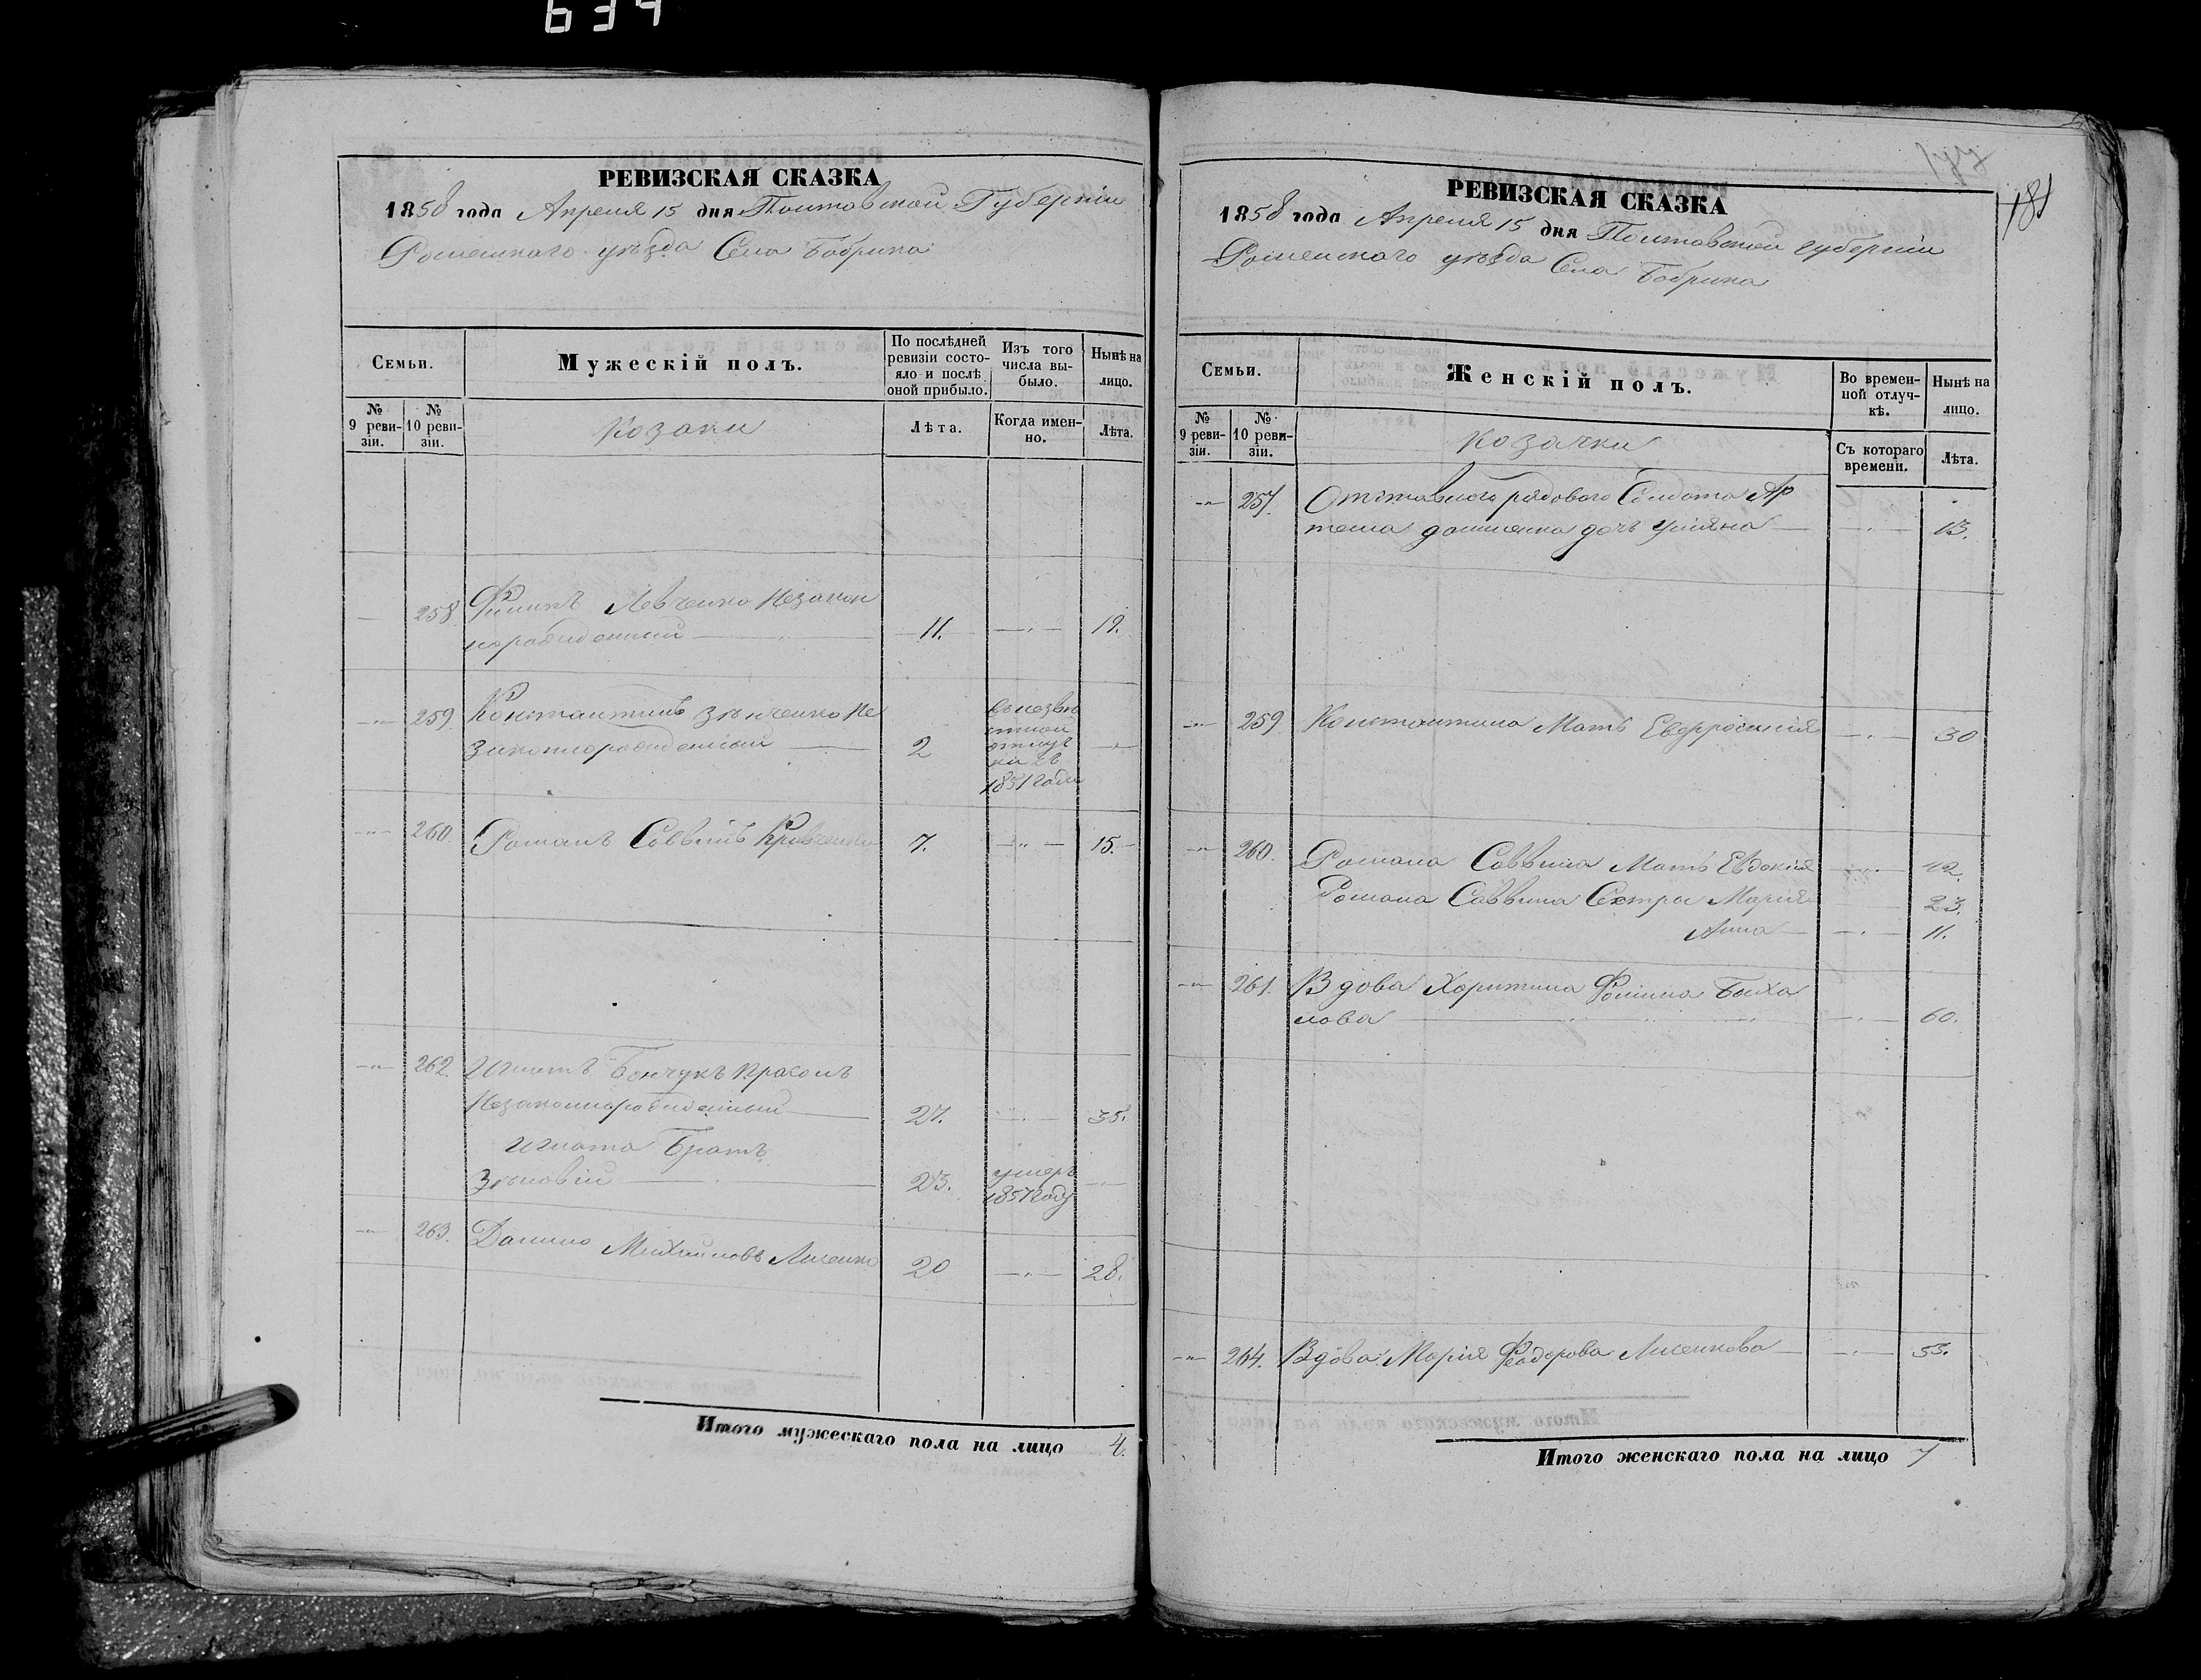 634
РЕВИЗСКАЯ СКАЗКА
1858 года Апреля 15 дня Полтавской Губерніи
Роменского уѣзда Села Бобрика
Семьи.
Мужескій полъ.
По послѣдней ревизіи состояло и послѣ оной прибыло.
Изъ того числа выбыло.
Нынѣ на лицо.
№ 9 ревизіи.
№ 10 ревизіи.
Козаки
Лѣта.
Когда именно.
Лѣта.
258 Филипъ Левченко Незакон
норожденный 11. 19.
259 Константинъ Зѣнченко Не
законнорожденный 2
въ неизвѣ
стной
отлуч
ки съ
1851 года
260. Романъ Саввинъ Кравченко 7. 15.
262. Игнатъ Бончукъ
Незаконнорожденный 27. 35.
Игната Братъ
Зѣновій 23. умеръ
1857 году
263. Данило Михайловъ Лисенко 20 28.
Итого мужескаго пола на лицо 4.
181
РЕВИЗСКАЯ СКАЗКА
1858 года Апреля 15 дня Полтавской губерніи
Роменского уѣзда Села Бобрика
Семьи.
Женскій полъ.
Во временной отлучкѣ.
Нынѣ на лицо.
№ 9 ревизіи.
№ 10 ревизіи.
Козачки
Съ котораго времени.
Лѣта.
257. Отставного рядового Солдата Ар
тема дочь Уліяна 13.
259 Константина Мать Евфросинія 30
260. Романа Саввина Мать Евдокія 42.
Романа Саввина Сестры Марія 23.
Анна 11.
261. Вдова Харитина Фомина Быха
нова 60.
264. Вдова Марія Феодорова Лисенкова 55.
Итого женскаго пола на лицо 7